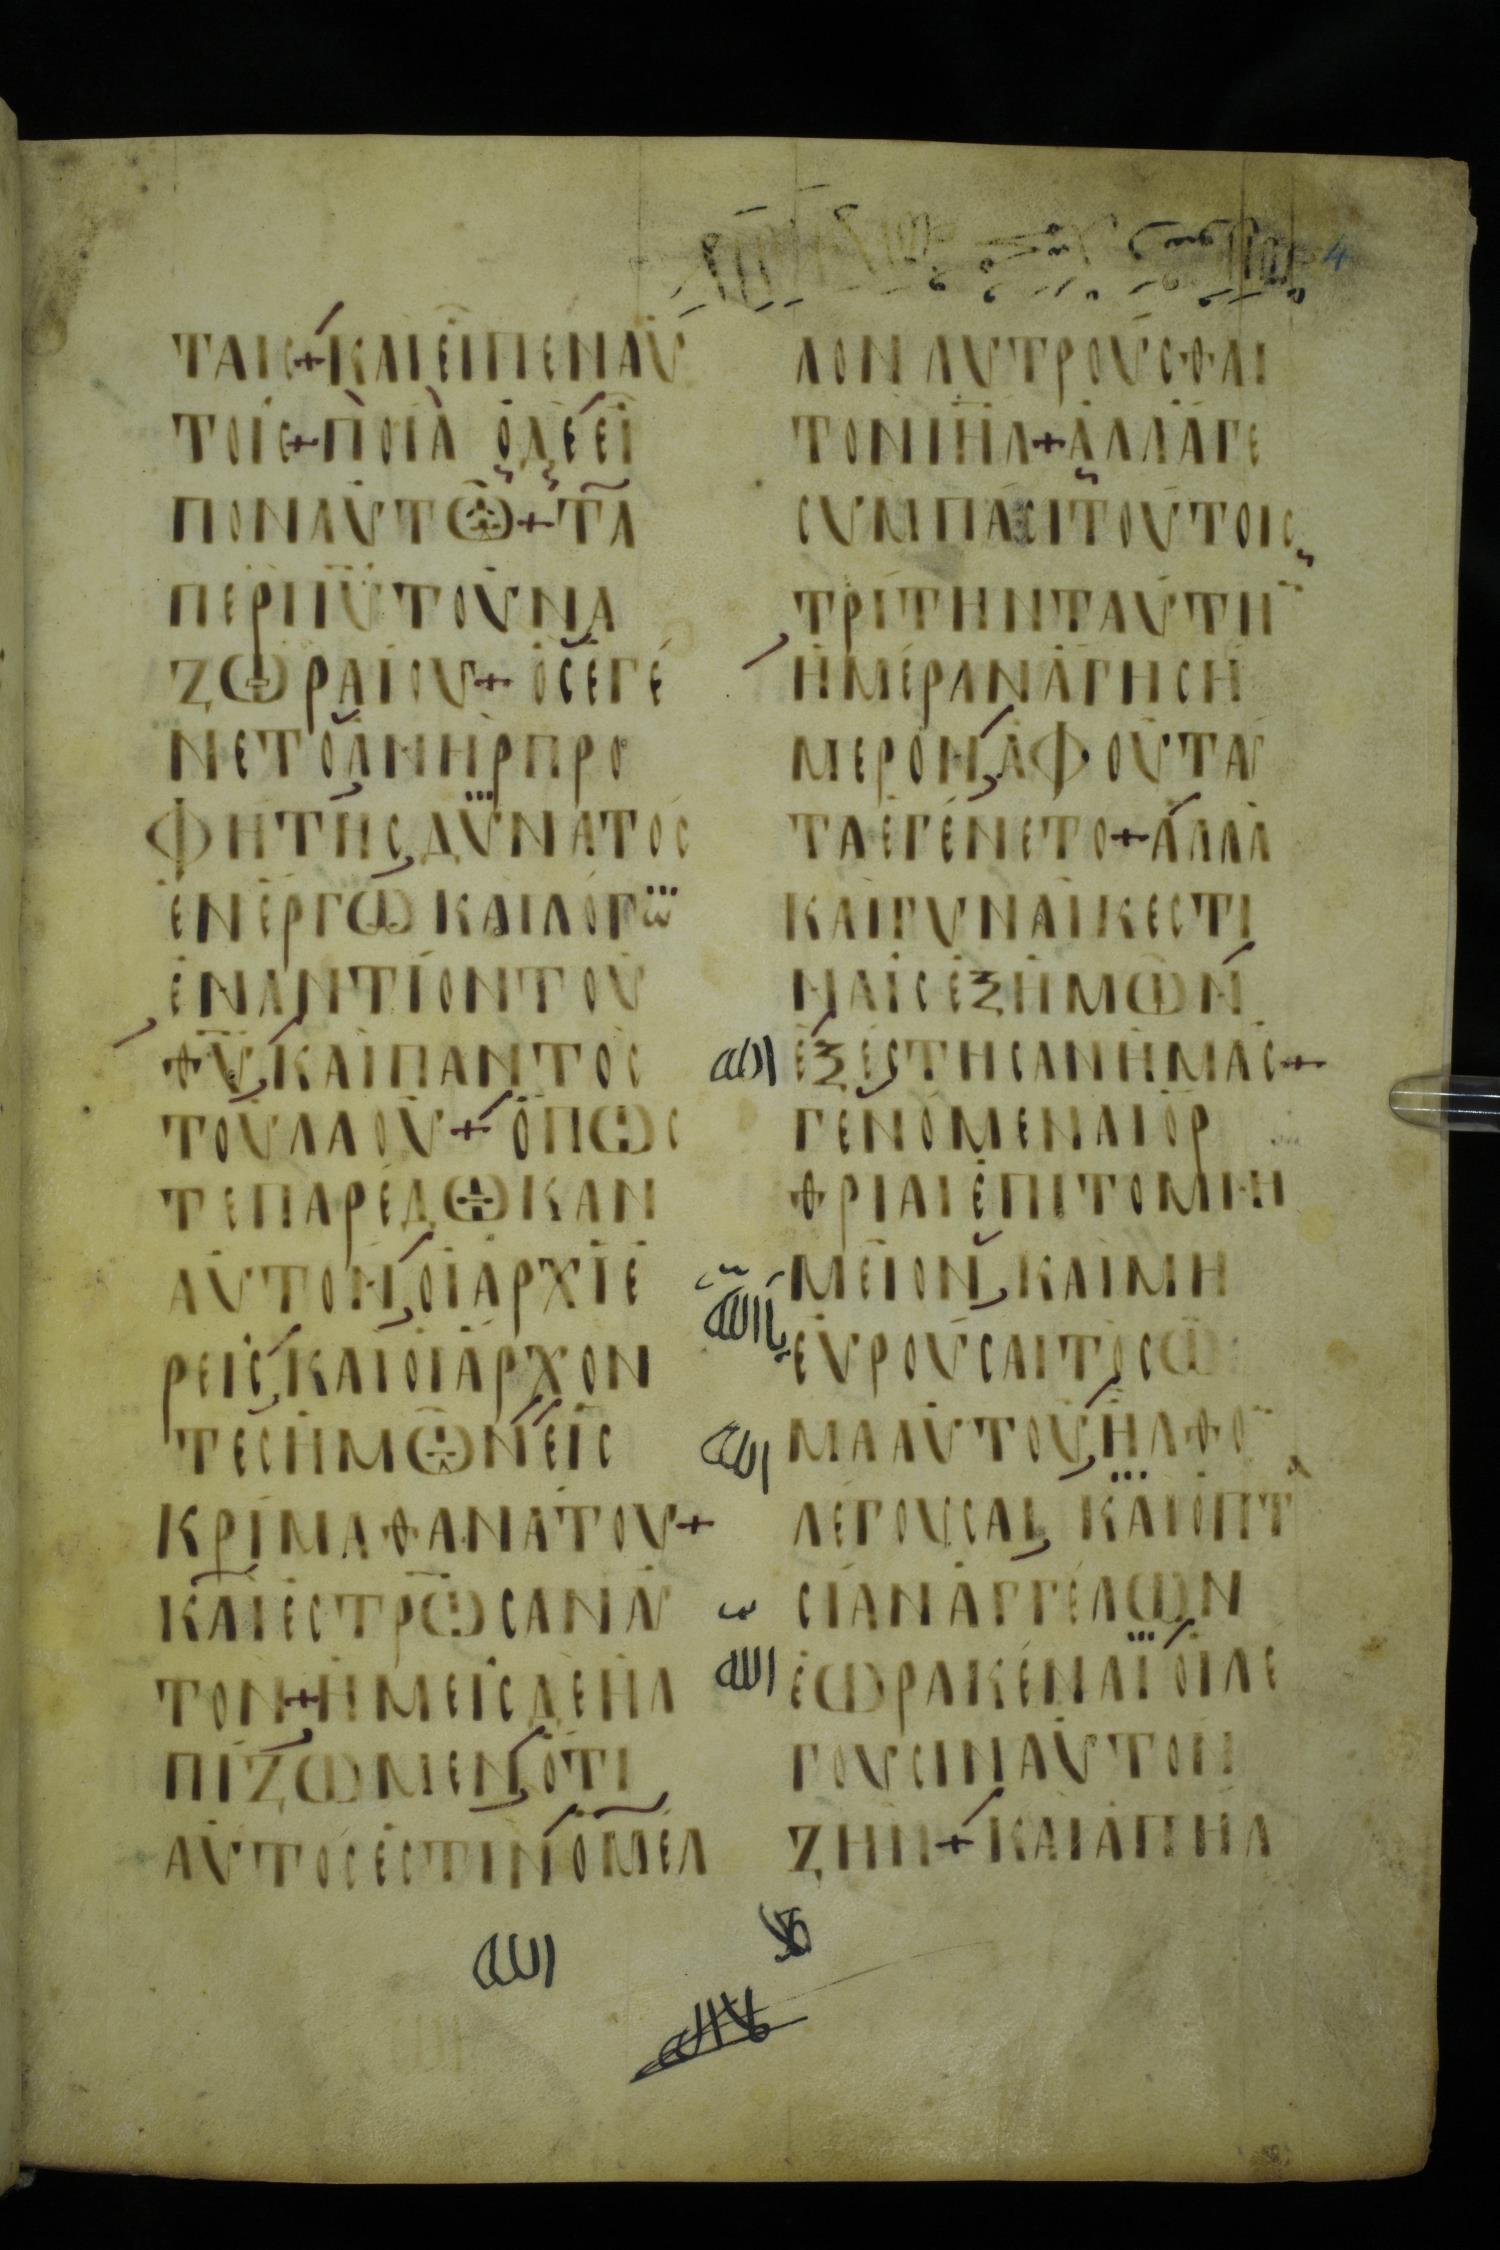 4
ΤΑΙϹ+ΚΑΙΕΙΠΕΝΑΥ
ΤΟΙϹ+ΠΟΙΑ ΟΔΕΕΙ
ΠΟΝΑΥΤΩ+ΤΑ
ΠΕΡΙΙΥΤΟΥΝΑ
ΖΩΡΑΙΟΥ+ΟϹΕΓΕ
ΝΕΤΟΑΝΗΡΠΡΟ
ΦΗΤΗϹ,ΔΥΝΑΤΟϹ
ΕΝΕΡΓΩΚΑΙΛΟΓω
ΕΝΑΝΤΙΟΝΤΟΥ
ΘΥ,ΚΑΙΠΑΝΤΟϹ
ΤΟΥΛΑΟΥ+ΟΠΩϹ
ΤΕΠΑΡΕΔΩΚΑΝ
ΑΥΤΟΝ,ΟΙΑΡΧΙΕ
ΡΕΙϹ,ΚΑΙΟΙΑΡΧΟΝ
ΤΕϹΗΜΩΝΕΙϹ
ΚΡΙΜΑΘΑΝΑΤΟΥ+
ΚΑΙΕϹΤΡΩϹΑΝΑΥ
ΤΟΝ+ΗΜΕΙϹΔΕΗΛ
ΠΙΖΩΜΕΝ,ΟΤΙ
ΑΥΤΟϹΕϹΤΙΝΟΜΕΛ
ΛΟΝΛΥΤΡΟΥϹΘΑΙ
ΤΟΝΙΗΛ+ΑΛΛΑΓΕ
ϹΥΜΠΑϹΙΤΟΥΤΟΙϹ,
ΤΡΙΤΗΝΤΑΥΤΗ¯
ΗΜΕΡΑΝΑΓΗϹΗ
ΜΕΡΟΝ,ΑΦΟΥΤΑΥ
ΤΑΕΓΕΝΕΤΟ+ΑΛΛΑ
ΚΑΙΓΥΝΑΙΚΕϹΤΙ
ΝΑΙϹΕΞΗΜΩΝ
ΕΞΕϹΤΗϹΑΝΗΜΑϹ+
ΓΕΝΟΜΕΝΑΙΟΡ
ΘΡΙΑΙΕΠΙΤΟΜΝΗ
ΜΕΙΟΝ,ΚΑΙΜΗ
ΕΥΡΟΥϹΑΙΤΟϹΩ
ΜΑΑΥΤΟΥ,ΗΛΘΟ¯
ΛΕΓΟΥϹΑΙ, ΚΑΙΟΠΤΑ
ϹΙΑΝΑΓΓΕΛΩΝ
ΕΩΡΑΚΕΝΑΙΟΙΛΕ
ΓΟΥϹΙΝΑΥΤΟΝ
ΖΗΝ+ΚΑΙΑΠΗΛ
الله
يا الله
الله
الله
الله